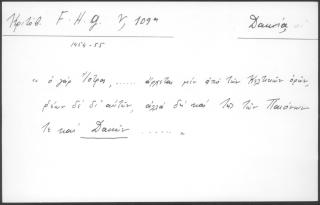 Κριτοβ. F. H. G. V, 109α Δακία
1454-55
" ὁ γὰρ Ἴστρος, ...... ἄρχεται μὲν ἀπὸ τῶν Κελτικῶν ὀρῶν,
ῥέων δὲ δι' αὐτῶν, ἀλλὰ δὴ καὶ τῶν Παιόνων
τε καὶ Δακῶν ...... "